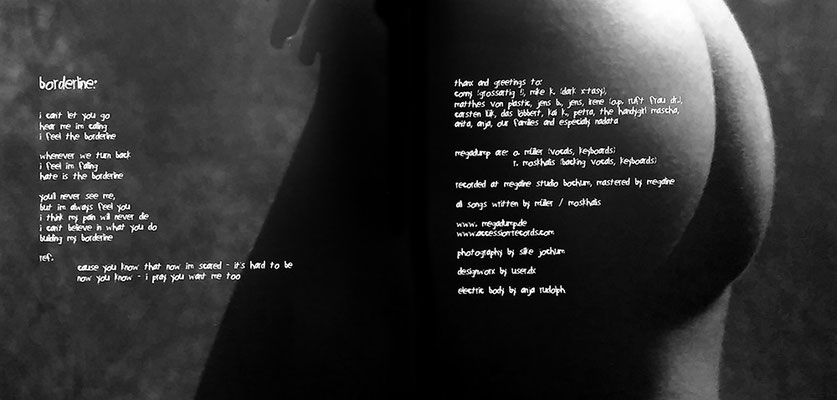 borderline:
i can't let you go
hear me im calling
i feel the borderline
whenever we turn back
i feel im falling
hate is the borderline
you'll never see me,
but im always feel you
i think my pain will never die
i can't believe in what you do
building my borderline
ref.:
cause you know that now im scared - it's hard to be
now you know - i pray you want me too
thanx and greetings to:
conny (grossartig !), mike k. (dark x-tasy),
matthes von plastic, jens b., jens, irene (o.p. ruft frau dr.),
carsten lük, das löbbert, kai k., petra, the handygirl mascha,
anita, anja, our families and especially nadata
megadump are: o. müller (vocals, keyboards)
r. moskhalis (backing vocals, keyboards)
recorded at megaline studio bochum, mastered by megaline
all songs written by müller / moskhalis
www. megadump.de
www.accessionrecords.com
photography by silke jochum
designworx by user.dx
electric body by anja rudolph